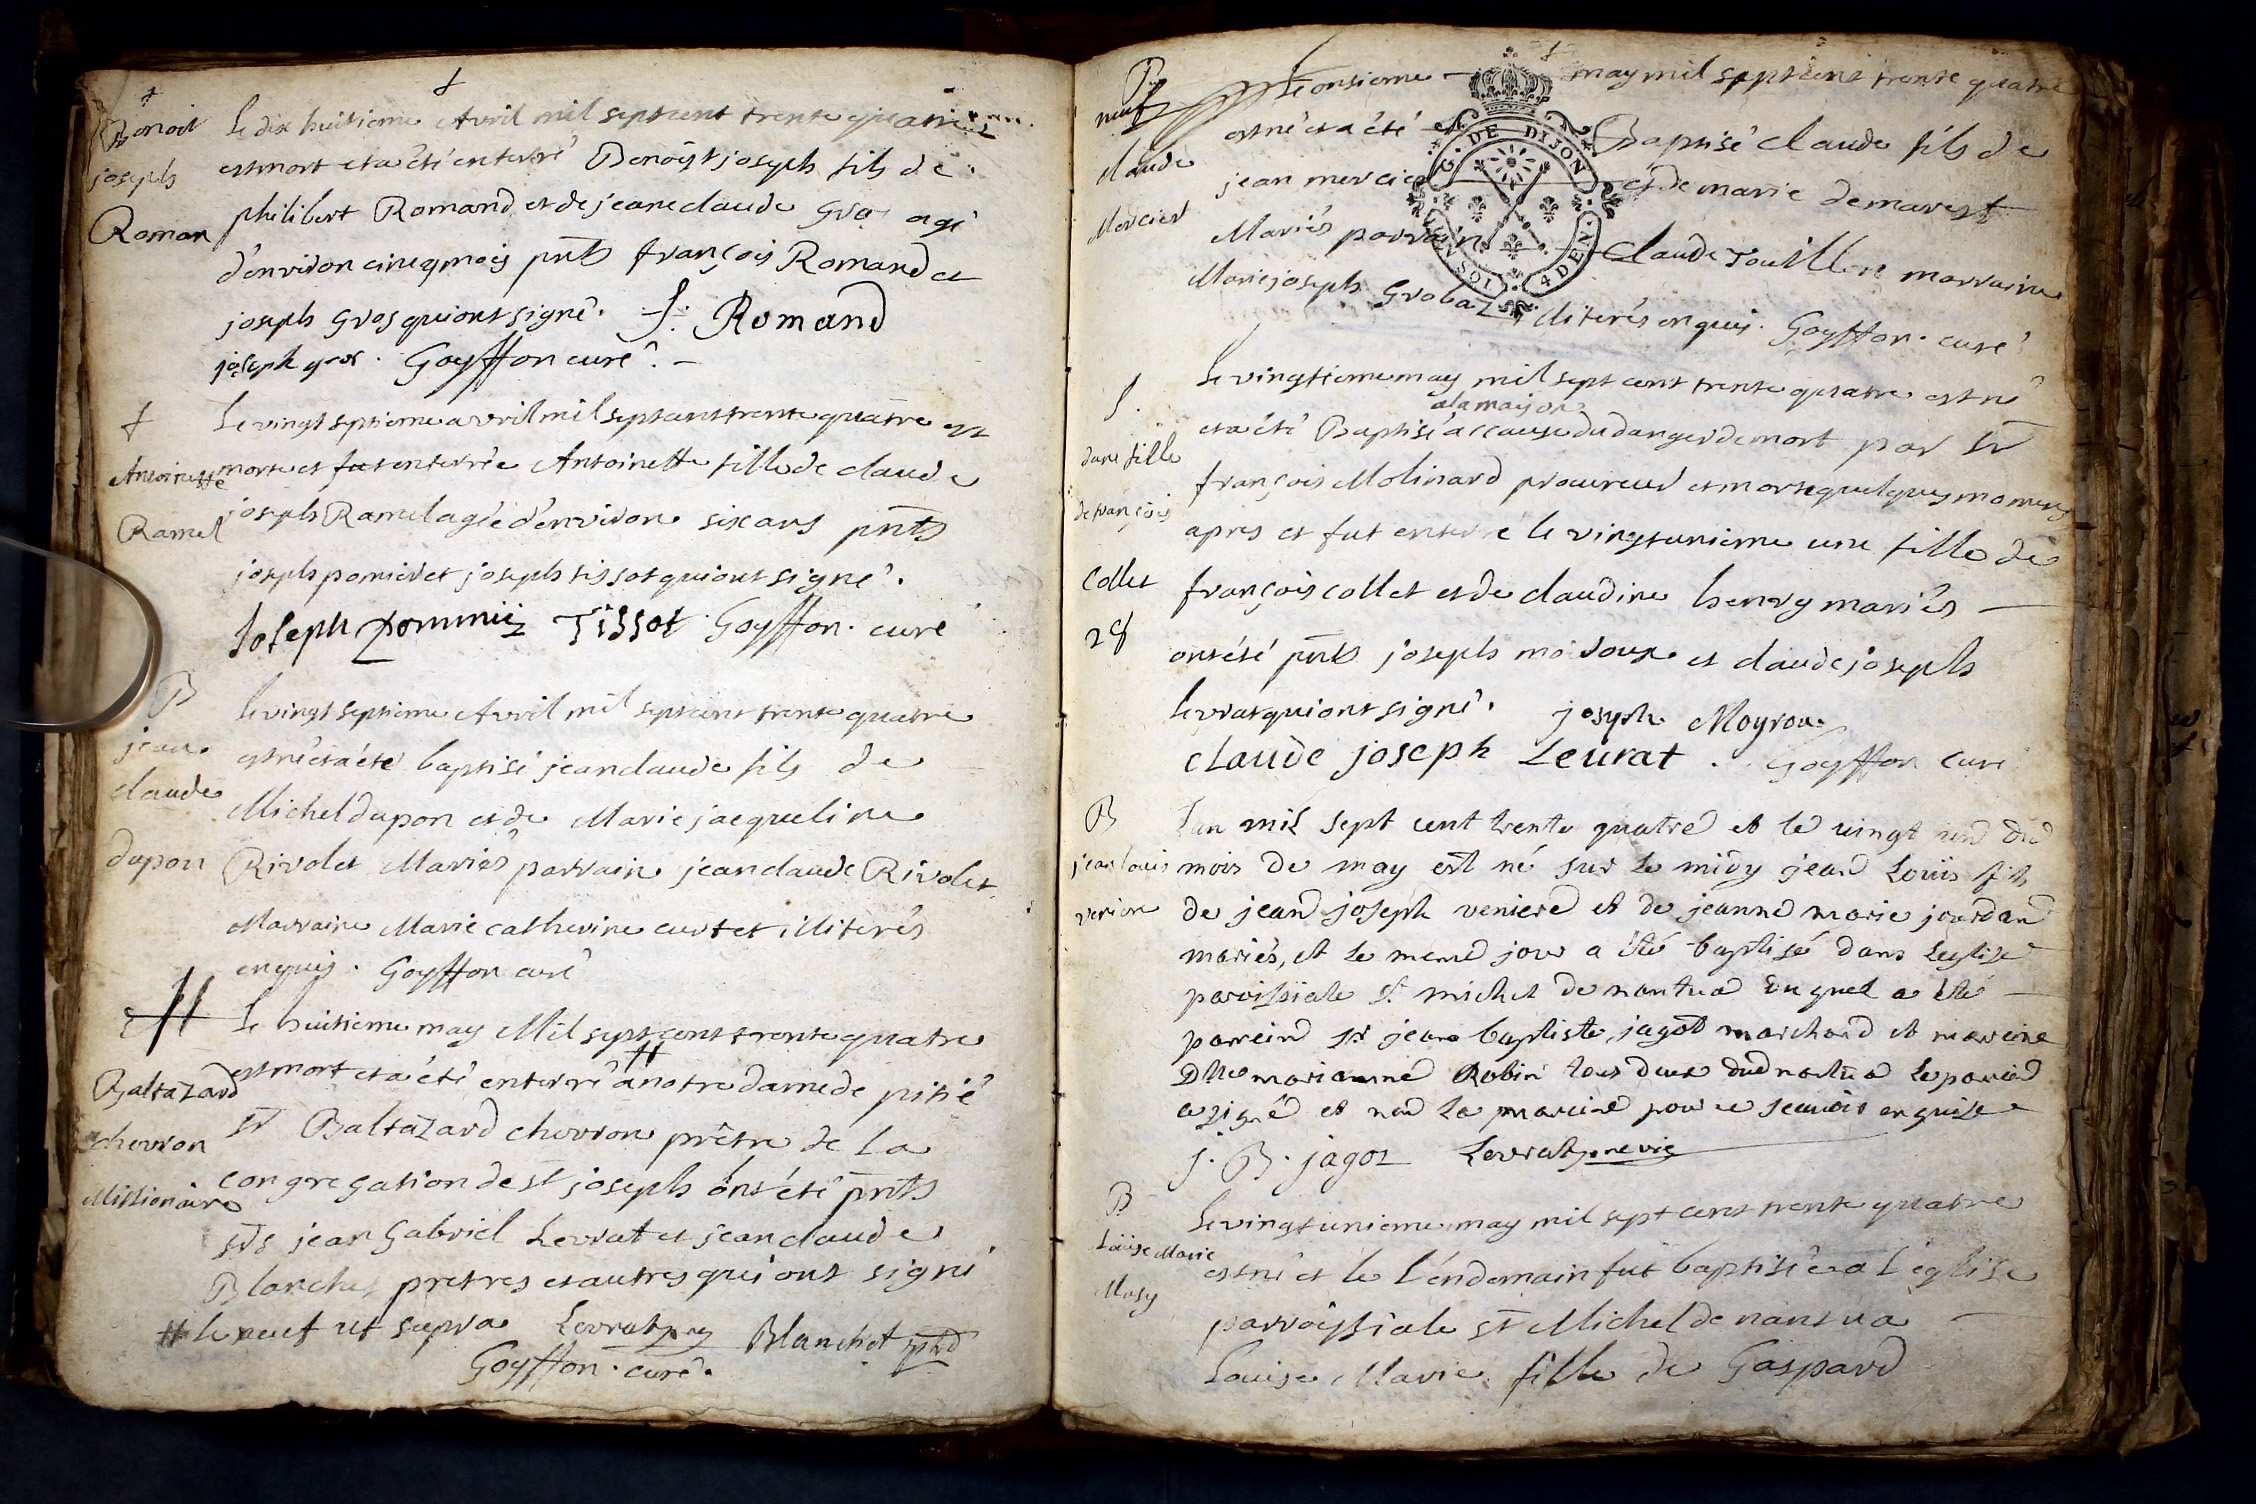 Benoit
joseph
Roman
Le dix huitieme Avril mil septcent trente quatre
est mort et a été enterré Benoist joseph fils de
philibert Romand et de jeane claude Gros agé
d'environ cinq mois pnts françois Romand et
joseph Gros qui ont signé. f: Romand
joseph gros. Goyffon curé.
Antoinette
Ramel
Le vingt septieme avril mil septcent trente quatre est
morte et fut enterrée Antoinette fille de claude
joseph Ramel agée d'environ six ans pnts
joseph pomier et joseph tissot qui ont signé.
Joseph pommiez Tissot Goyffon. curé
B
jean
claude
dupon
Le vingt septieme Avril mil septcent trente quatre
est né et a été baptisé jean claude fils de
Michel dupon et de Marie jacqueline
Rivolet Mariés parrain jean claude Rivolet
Marraine Marie catherine curtet illiterés
enquis. Goyffon curé
Baltazard
chevron
Missionaire
Le huitieme may Mil septcent trente quatre
est mort et a été enterré # a notre dame de pitié
sr Baltazard chevron prêtre de la
congregation de st joseph ont été pnts
srs jean Gabriel Levrat et jean claude
Blanchet pretres et autres qui ont signé
# le neuf ut supra Levrat Blanchet
Goyffon. curé.
B
neuf
claude
Mercier
Le onsieme may mil septcent trente quatre
est né et a été Baptisé claude fils de
jean mercier et de marie demarest
Mariés parrain Claude marraine
Marie joseph Grobaz illiterés enquis. Goyffon. curé
G. DE DIJON
4 DEN.
f.
dune fille
de françois
Collet
Le vingtieme may mil sept cent trente quatre est né
a la maison
et a été Baptisé a cause du danger de mort par sr
françois Molinard procureur et morte quelques momens
apres et fut enterré le vingtunieme une fille de
françois collet et de claudine henry mariés
ont été pnts joseph moiroux et claude joseph
levrat qui ont signé. joseph Moyroux
claude joseph Leurat. Goyffon curé
B
jean louis
veniere
Lan mil sept cent trente quatre et le vingt un du
mois de may est né sur le midy jean Louis fils
de jean joseph veniere et de jeanne marie jourdan
mariés, et le meme jour a été baptisé dans leglise
parroissiale st michel de nantua duquel a été
parrein sr jean baptiste jagot marchand et marreine
Dlle marianne Robin tous deux dud nantua le parrein
a signé et non la marreine pour ne scauoir enquise
J. B. jagot Levrat
B
Louise Marie
Masy
Le vingtunieme may mil sept cent trente quatre
est né et le l'endemain fut baptisée a L'église
parroissiale st Michel de nantua
Louise Marie fille de Gaspard